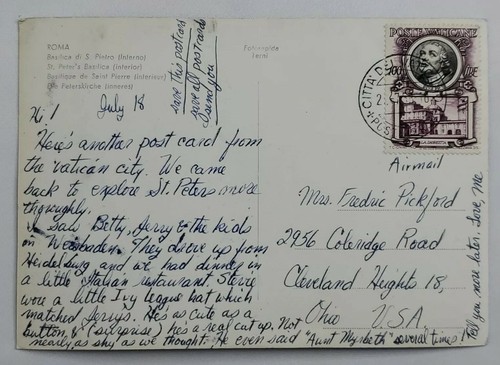 ROMA
Basilica di S. Pietro (interno)
St. Peter's Basilica (interior)
Basilique de Saint Pierre (interieur)
Die Peterskirche (inneres)
save this postcard
save all postcards
I send you
Fotorapide
Terni
POSTE VATICANE
CITTA' DEL
POS
LA ZECCA
Hi!
July 18
Here's another post card from
the Vatican city. We came
back to explore St. Peters more
thoroughly.
I saw Betty, Jerry & the kids
in Weisbaden. They drove up from
Heidelburg and we had dinner in
a little Italian restaurant. Steve
wore a little Ivy league hat which
matched Jerrys. He's as cute as a
button, & (surprise) he's a real cut up. Not
nearly as shy as we thought. He even said "Aunt Mysbeth" several times!
Tell you more later. Love, me
Airmail
Mrs. Fredric Pickford
2956 Coleridge Road
Cleveland Heights 18,
Ohio U.S.A.